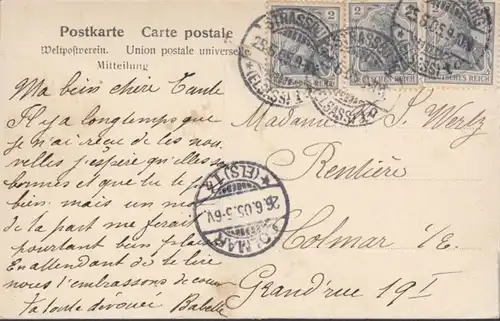 Postkarte Carte postale
Weltpostverein. Union postale universelle
Mitteilung
2 2
DEUTSCHES REICH DEUTSCHES REICH
STRASSBURG
25.6.05.
*(ELSASS)1
Ma bien chère Tante
Il y a longtemps que
je n'ai reçu de tes nou-
velles j'espère qu'elles se
bonnes et que tu te
bien. mais un mot
de ta part me ferait
pourtant bien plaisir
En attendant de te lire
nous t'embrassons de coeur
Ta toute dévouée Babette
Madame S. Wertz
Rentière
Colmar i/E.
Grand'rue 19 I
COLMAR
26.6.05.5-6V.
*(ELS)1